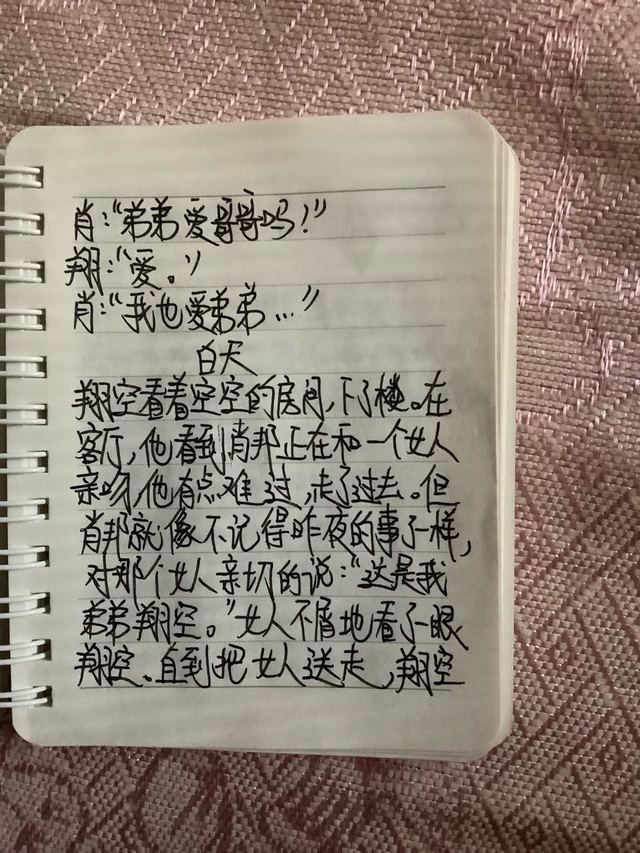 肖:“弟弟爱哥哥吗!”
翔:“爱。”
肖:“我也爱弟弟…”
白天
翔空看着空空的房间,下了楼。在
客厅,他看到肖邦正在和一个女人
亲吻,他有点难过,走了过去。但
肖邦就像不记得昨夜的事了一样,
对那个女人亲切的说:“这是我
弟弟翔空。”女人不屑地看了一眼
翔空、直到把女人送走,翔空